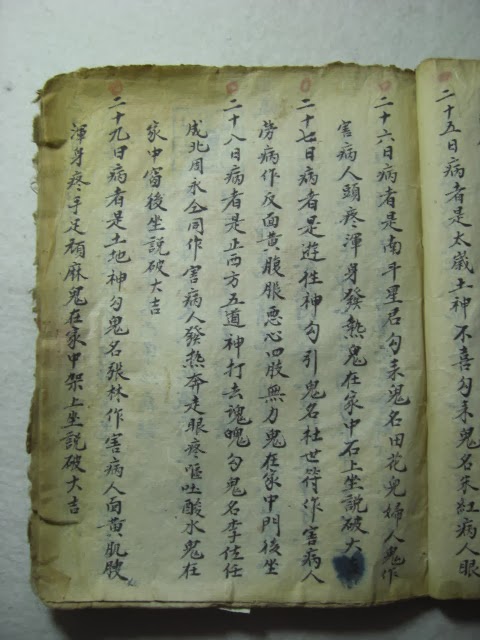 二十五日病者是太歲土神不喜勾來鬼名朱紅病人眼
二十六日病者是南斗星君勾來鬼名田花兒婦人鬼作
害病人頭疼渾身發熱鬼在家中石上坐說破大
二十七日病者是遊牲神勾引鬼名杜世符作害病人
勞病作反面黃腹脹惡心四肢無力鬼在家中門後坐
二十八日病者是正西方五道神打去魂魄勾鬼名李佳任
成北周永全同作害病人發熱奔走眼疼嘔吐酸水鬼在
家中窗後坐說破大吉
二十九日病者是土地神勾鬼名張林作害病人面黃肌瘦
渾身疼手足顏麻鬼在家中架上坐說破大吉